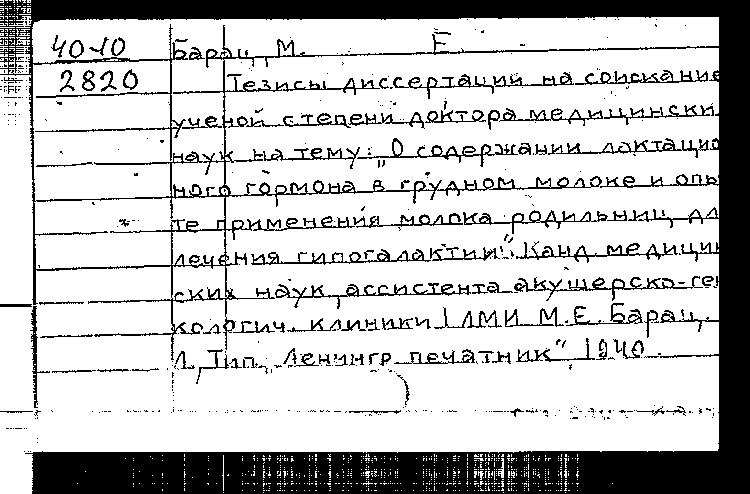 40-10
2820
Барац, М. Е.
Тезисы диссертаций на соискание
ученой степени доктора медицински
наук на тему: „О содержании лактацио
ного гормона в грудном молоке и опы
те применения молока родильниц дл
лечения гипогалактии". Канд. медицин
ских наук, ассистента акушерско-ге
кологич. клиники I ЛМИ М.Е. Барац.
Л., Тип. „Ленингр. печатник", 1940.